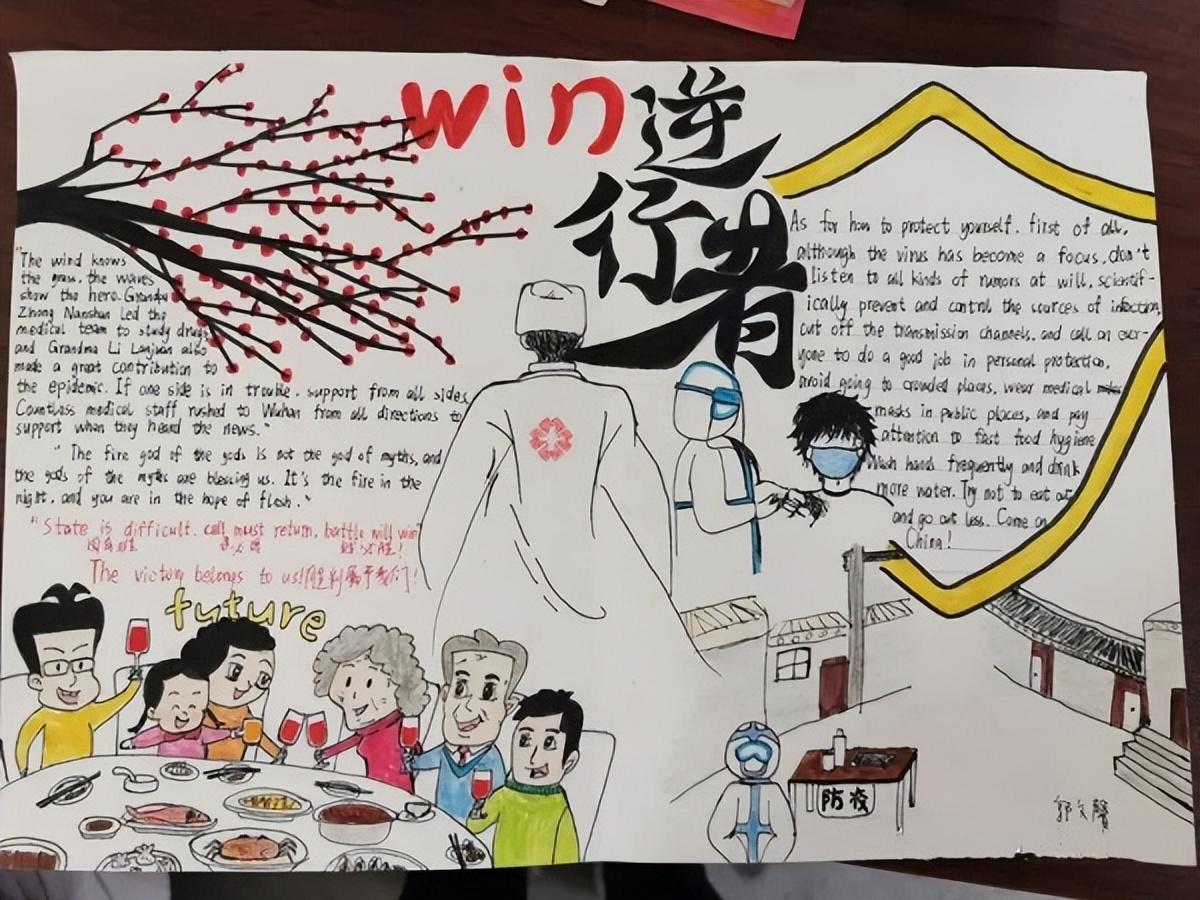 win
逆
行
者
"The wind knows
the grass, the waves
show the hero. Grandpa
Zhong Nanshan led the
medical team to study drugs
and Grandma Li Lanjuan also
made a great contribution to
the epidemic. If one side is in trouble, support from all sides,
Countless medical staff rushed to Wuhan from all directions to
support when they heard the news."
"The fire god of the gods is not the god of myths, and
the gods of the myths are blessing us. It's the fire in the
night, and you are in the hope of flesh."
"State is difficult, call must return, battle will win"
国有难 召必回 战必胜!
The victory belongs to us! 胜利属于我们!
future
As for how to protect yourself. first of all,
although the virus has become a focus, don't
listen to all kinds of rumors at will, scientif-
ically prevent and control the sources of infection,
cut off the transmission channels, and call on ever-
yone to do a good job in personal protection,
avoid going to crowded places, wear medical
masks in public places, and pay
attention to fast food hygiene
Wash hands frequently and drink
more water. Try not to eat out
and go out less. Come on
China!
防疫